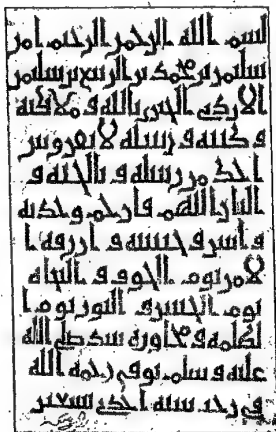 بسم الله الرحمن الرحيم امن
سليمن بن محمد بن الربيع بن سليمن
الازدي الجيزي بالله و ملائكته
و كتبه و رسله لا يفرق بين
احد من رسله و بالجنه و
النار اللهم فارحم وحدته
و انس وحشته و ارزقه ا
لامن يوم الخوف و النجاه
يوم الحشر و النور يوم ا
لظلمه و مجاوره نبيك صلى الله
عليه و سلم توفي رحمه الله
في رجب سنه احدى